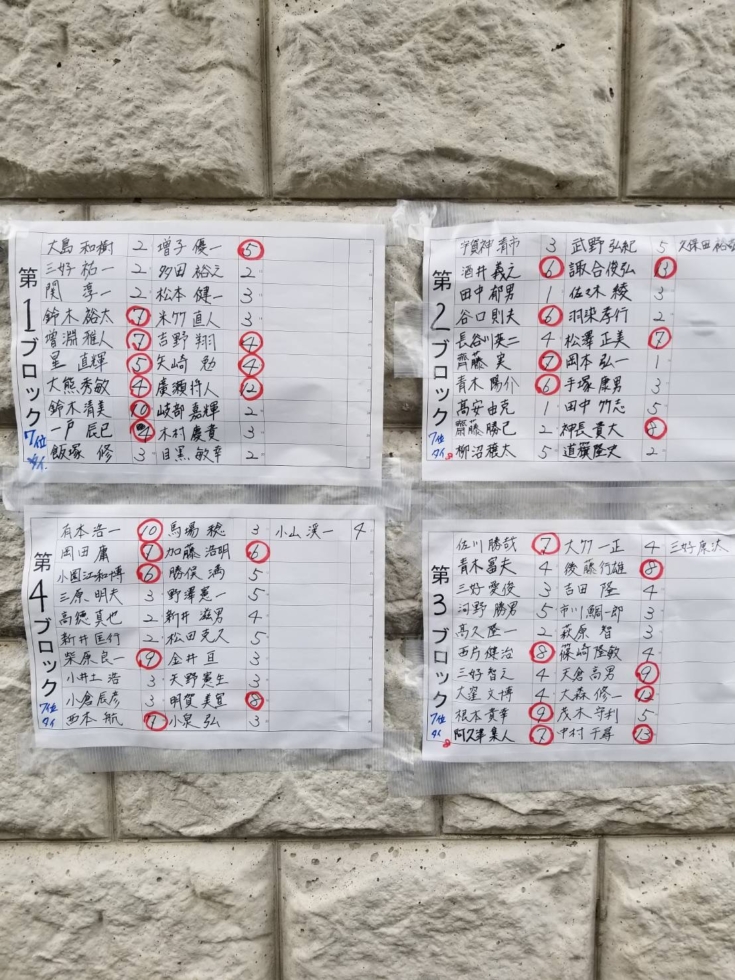 第1ブロック
7位タイ
大島 和樹 2 増子 優一 5
三好 祐一 2 多田 裕之 2
関 淳一 2 松本 健一 3
鈴木 裕太 7 米竹 直人 3
曽淵 雅人 7 吉野 翔 4
星 直輝 5 矢崎 勉 4
大熊 秀敏 4 廣瀬 将人 12
鈴木 清美 10 岐部 嘉輝 2
一戸 辰巳 4 木村 慶貴 3
飯塚 修 3 目黒 敏幸 2
第2ブロック
7位タイ
宇賀神 3 武野 弘紀 5 久保田
酒井 義之 6 諏合 俊弘
田中 郁男 1 佐々木 綾 3
谷口 則夫 6 羽染 孝行 2
長谷川 英二 4 松澤 正美 7
齋藤 実 7 岡本 弘一 1
青木 陽介 6 手塚 康男 3
髙安 由克 1 田中 竹志 5
齋藤 勝己 2 神長 貴大 8
柳沼 雅太 5 道簱 隆史 2
第4ブロック
7位タイ
有本 浩一 10 馬場 稔 3 小山 渓一 4
岡田 庸 7 加藤 浩明 6
小園江 和博 6 勝俣 満 5
三原 明夫 3 野澤 憲一 5
高徳 真也 2 新井 滋男 4
新井 匡行 2 松田 克久 5
柴原 良一 9 金井 亘 3
小井土 浩 3 天野 憲生 3
小倉 辰彦 3 明賀 美宣 8
西本 航 7 小泉 弘 3
第3ブロック
7位タイ
佐川 勝哉 7 大竹 一正 4 三好
青木 冨夫 4 後藤 行雄 8
三好 愛俊 3 吉田 隆 4
河野 勝男 5 市川 鯛一郎 3
高久 隆一 2 萩原 智 3
西片 健治 8 篠﨑 隆敏 4
三好 智之 4 天倉 高男 9
大窪 文博 4 大森 修一 12
根本 貴幸 9 茂木 守利 5
阿久津 果人 7 中村 千尋 13